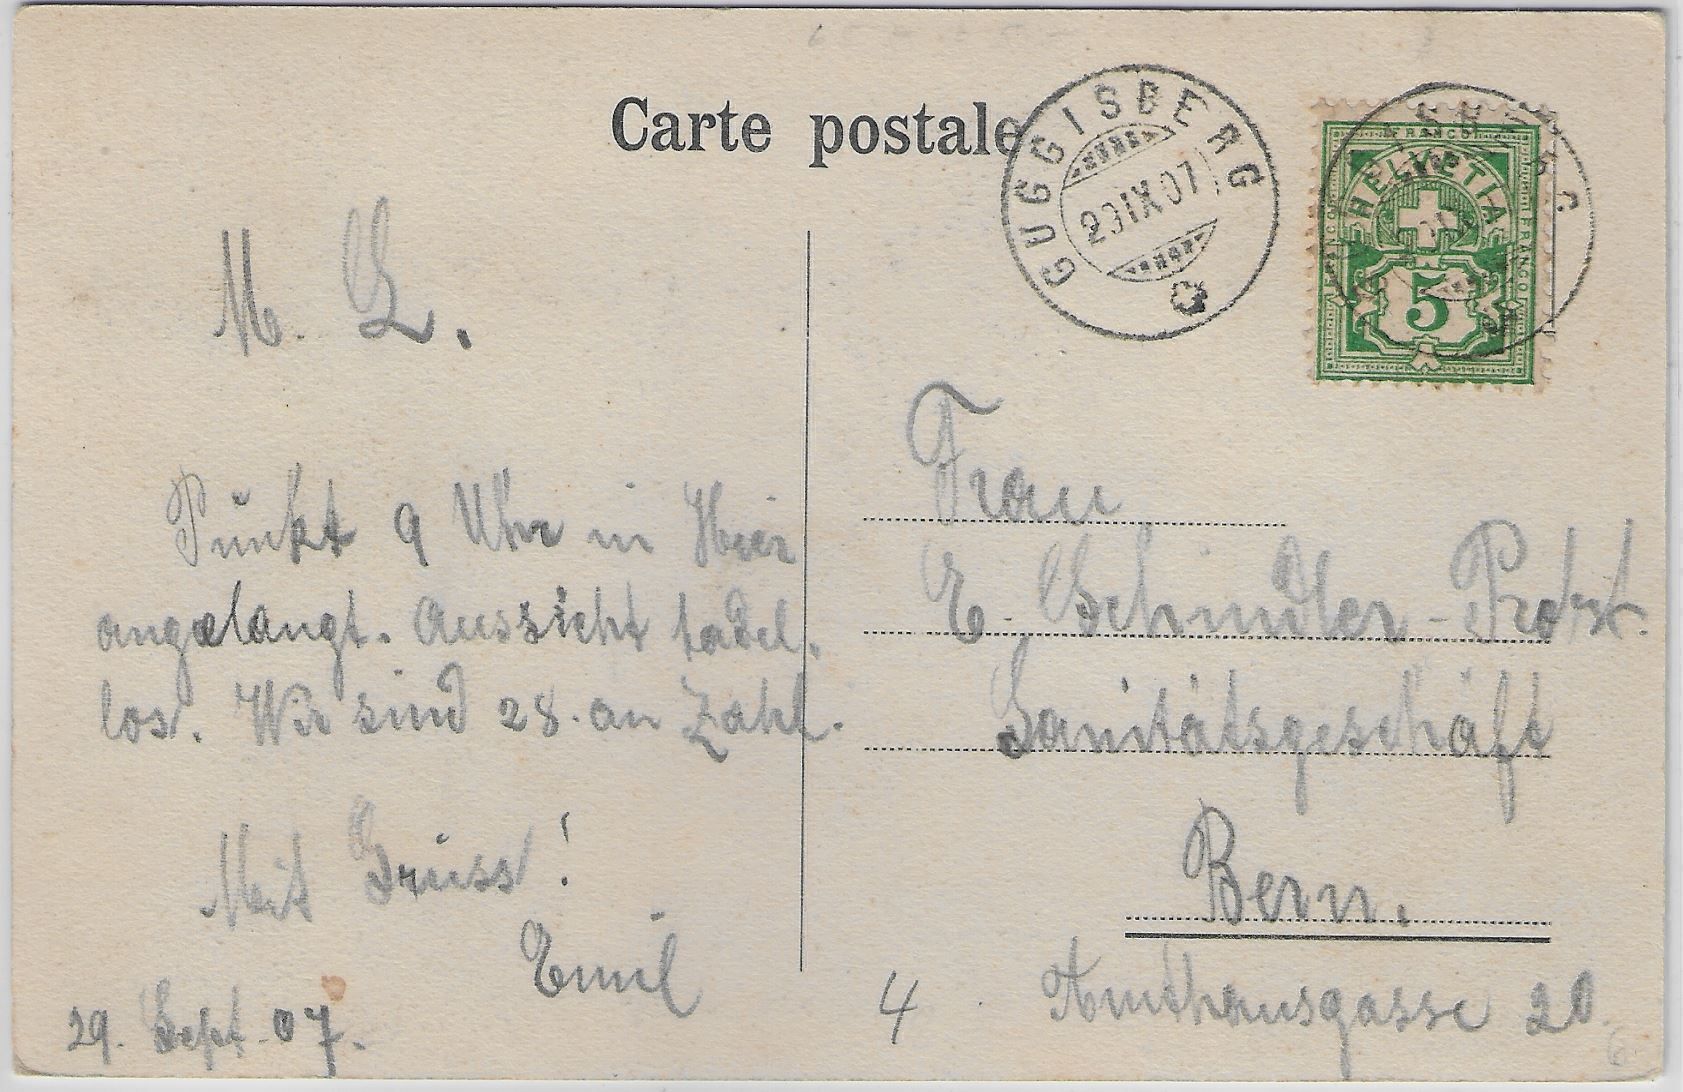 Carte postale
GUGGISBERG
29 IX 07
FRANCO
HELVETIA
FRANCO
FRANCO
5
M. L.
Punkt 9 Uhr in Hier
angelangt. Aussicht tadel-
los. Wir sind 28. an Zahl.
Mit Gruss!
Emil
29. Sept. 07.
Frau
E. Schindler-Probst.
Sanitätsgeschäft
Bern.
Amthausgasse 20.
4